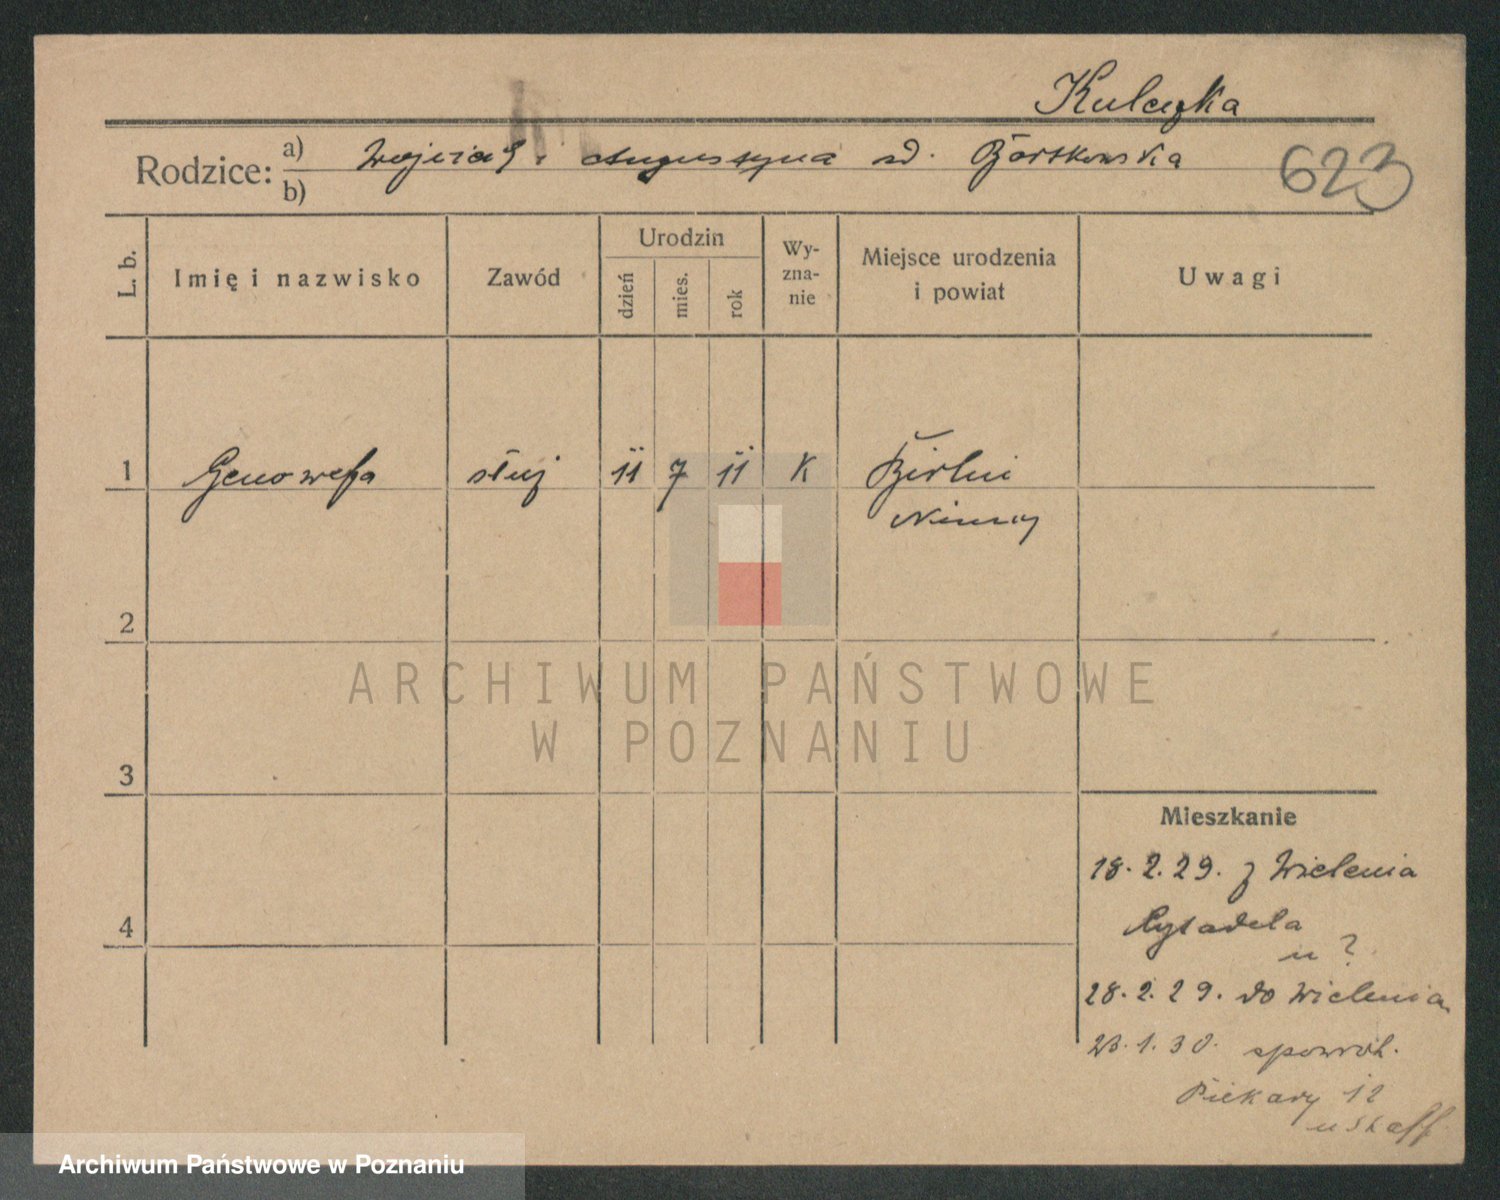 Kulczka
Rodzice: a) Wojciech, Augustyna zd. Bortkowska
b)
623
L. b.
Imię i nazwisko
Zawód
Urodzin
dzień
mies.
rok
Wy-
zna-
nie
Miejsce urodzenia
i powiat
Uwagi
1 Genowefa służ 11 7 11 K Berlin
Niemcy
2
ARCHIWUM PAŃSTWOWE
W POZNANIU
3
Mieszkanie
18.2.29. z Wielenia
Cytadela
u ?
4
28.2.29. do Wielenia
1.30. spowrot.
Piekary 12
u
Archiwum Państwowe w Poznaniu